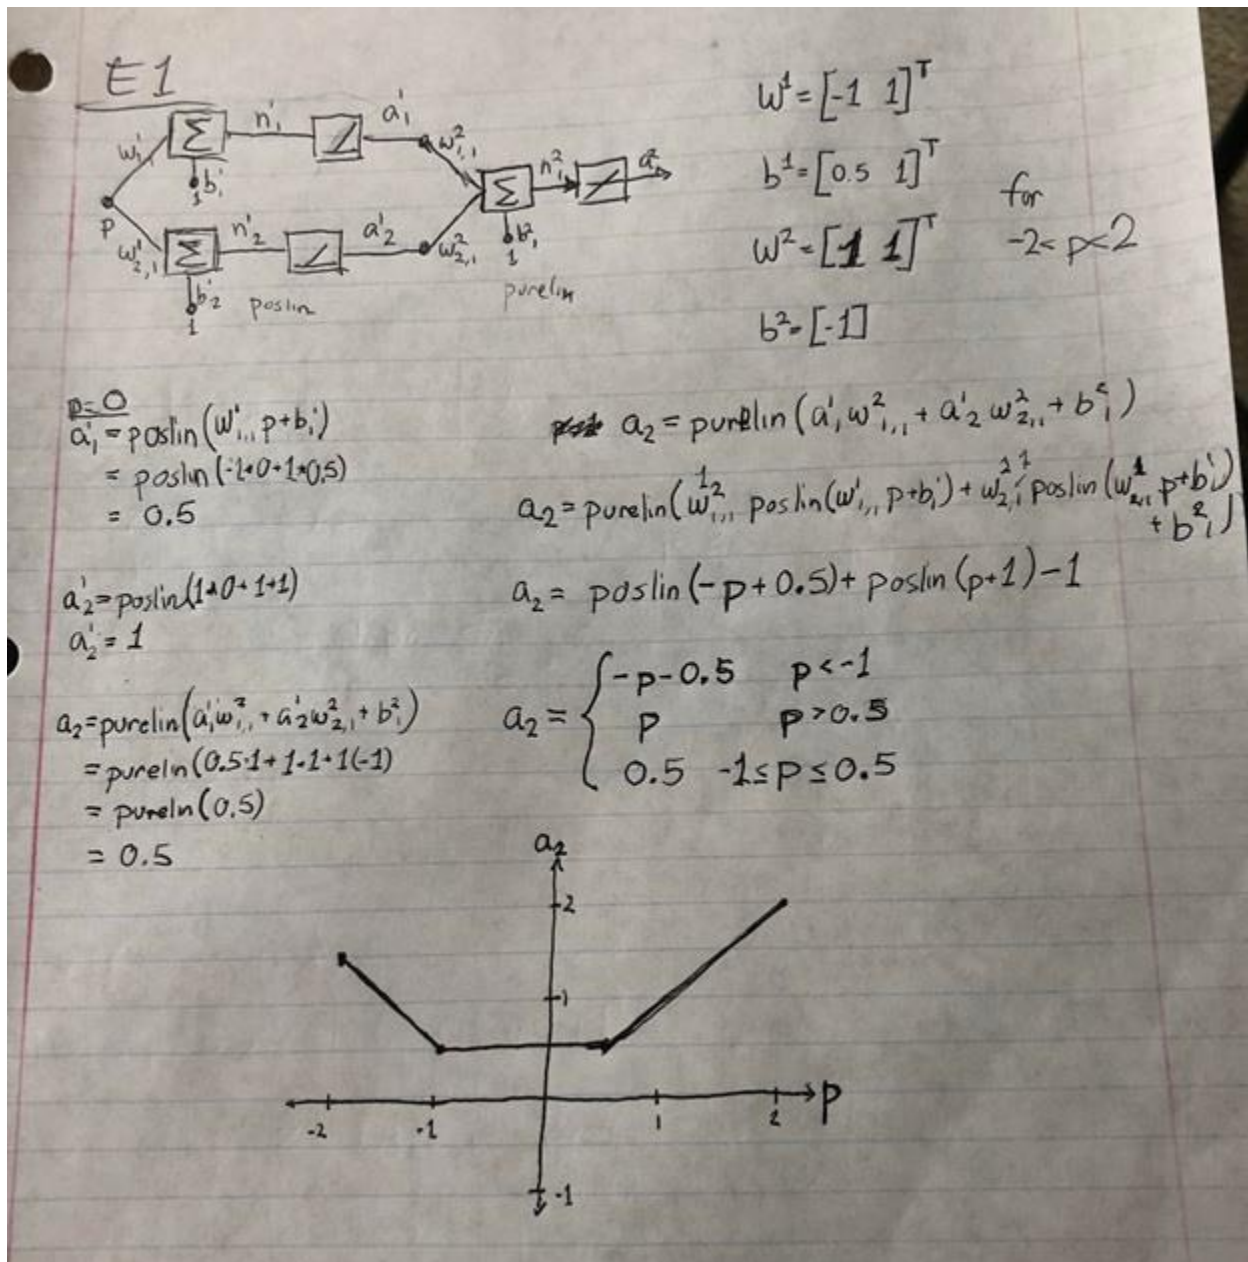 E1
w¹₁,₁ Σ n¹₁ a¹₁ w²₁,₁
b¹₁
1
p
w¹₂,₁ Σ n¹₂ a¹₂ w²₂,₁
b¹₂
1
poslin
Σ n²₁ a²₁
b²₁
1
purelin
w¹=[-1 1]ᵀ
b¹=[0.5 1]ᵀ
w²=[1 1]ᵀ
b²=[-1]
for
-2<p<2
p=0
a¹₁=poslin(w¹₁,₁ p+b¹₁)
= poslin(-1*0+1*0.5)
= 0.5
a¹₂=poslin(1*0+1*1)
a¹₂=1
a₂=purelin(a¹₁w²₁,₁+a¹₂w²₂,₁+b²₁)
=pureln(0.5·1+1·1+1(-1)
= pureln(0.5)
= 0.5
a₂=purelin(a¹₁w²₁,₁+a¹₂w²₂,₁+b²₁)
a₂=purelin(w²₁,₁ poslin(w¹₁,₁ p+b¹₁)+w²₂,₁ poslin(w¹₂,₁ p+b¹₁)
+b²₁)
a₂= poslin(-p+0.5)+poslin(p+1)-1
a₂= { -p-0.5 p<-1
p p>0.5
0.5 -1≤p≤0.5
a₂
2
1
-2 -1 1 2 p
-1